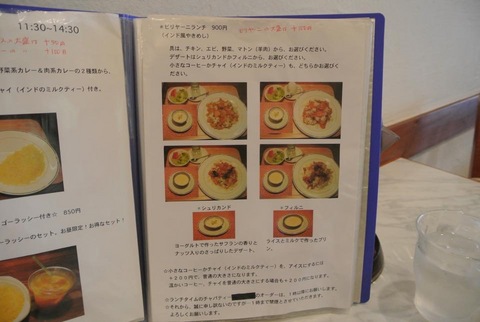 11:30~14:30
野菜系カレー&肉系カレーの2種類から、
チャイ(インドのミルクティー)付き。
ゴーラッシー付き☆ 850円
ーラッシーのセット。お昼限定!お得なセット!
*ビリヤーニランチ 900円
(インド風やきめし)
具は、チキン、エビ、野菜、マトン(羊肉)から、お選びください。
デザートはシュリカンドかフィルニから、お選びください。
小さなコーヒーかチャイ(インドのミルクティー)も、どちらかお選びください。
*シュリカンド
*フィルニ
ヨーグルトで作ったサフランの香りと
ナッツ入りのさっぱりしたデザート。
ライスとミルクで作ったプリン。
☆小さなコーヒーかチャイ(インドのミルクティー)を、アイスにするには
+200円で、普通の大きさになります。
温かいコーヒー、チャイを普通の大きさにする場合も+200円になります。
☆ランチタイムのチャパティー
のオーダーは、1時以降にお願いします。
よろしくお願いします。